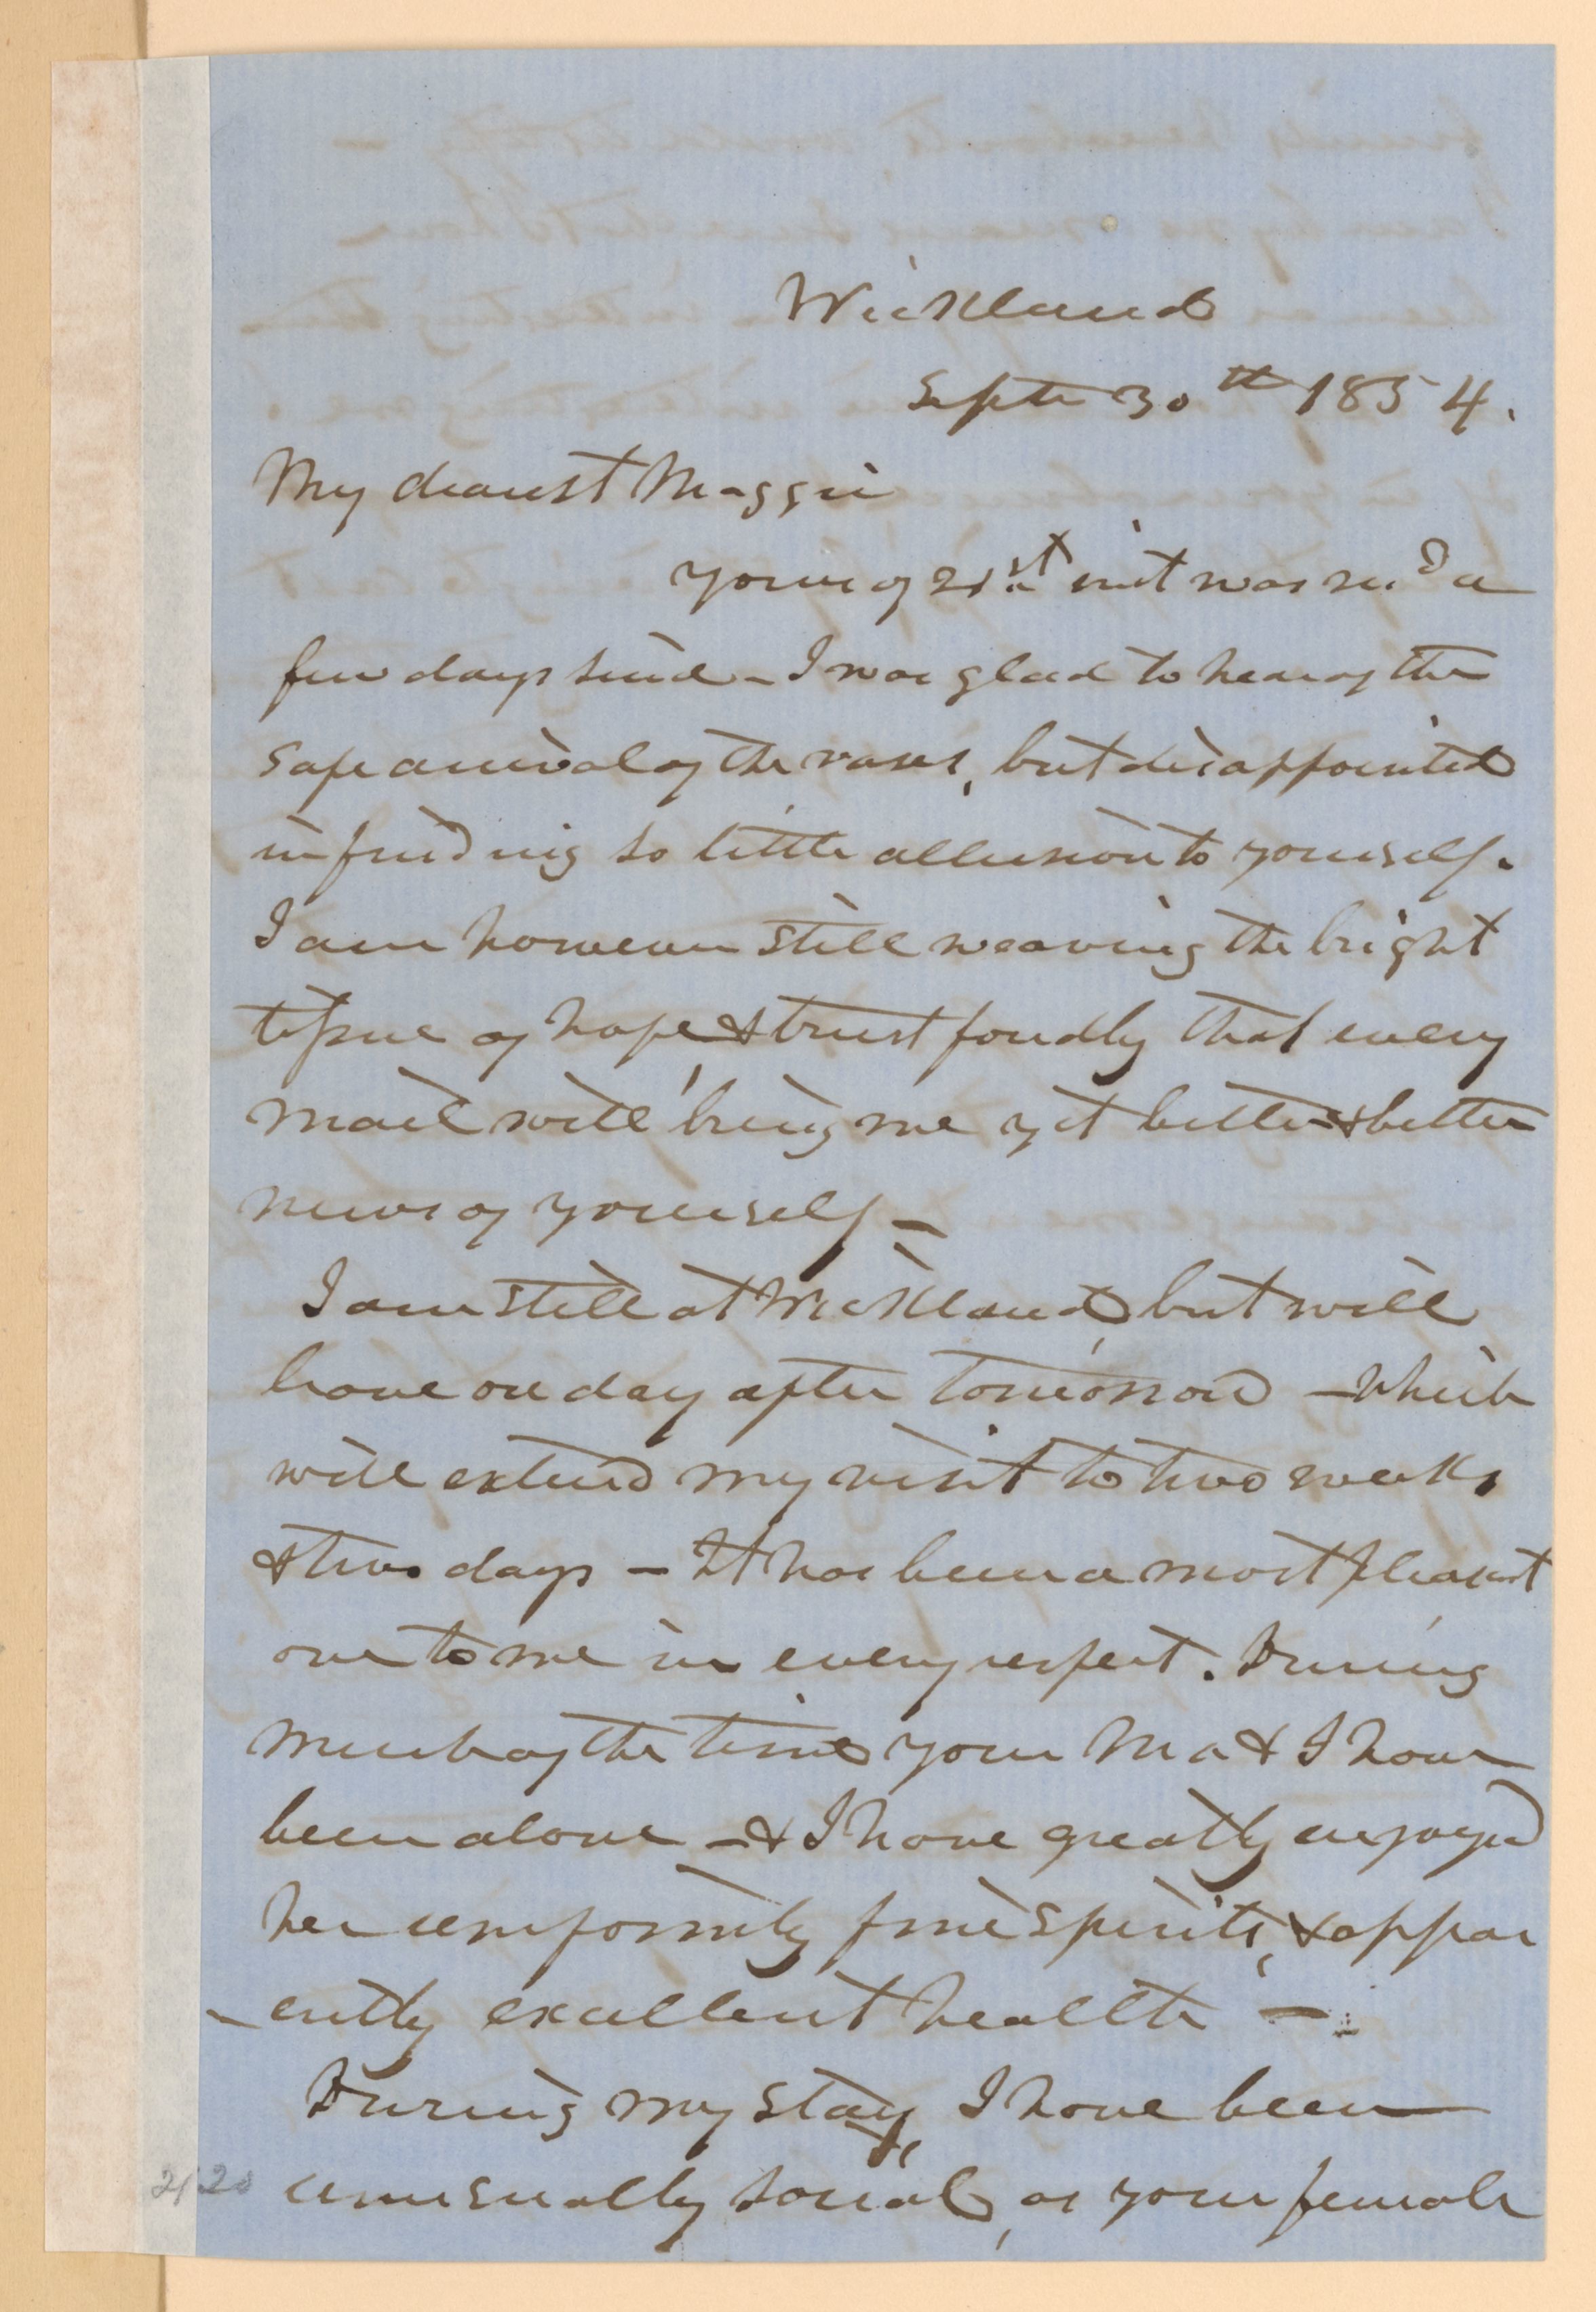 Wickland
Septr 30th 1854.
My dearest Maggie
yours of 21st inst was recd a
few days since - I was glad to hear of the
safe arrival of the vases, but disappointed
in finding so little allusion to yourself.
I am however still weaving the bright
tissue of hope & trust fondly that every
mail will bring me yet better & better
news of yourself -
I am still at Wickland, but will
leave on day after tomorrow - which
will extend my visit to two weeks
& two days - It has been a most pleasant
one to me in every respect. During
much of the time your Ma & I have
been alone - & I have greatly enjoyed
her uniformly fine spirits, & appar
-ently excellent health -
During my stay, I have been
unusually social, as your female
21 20